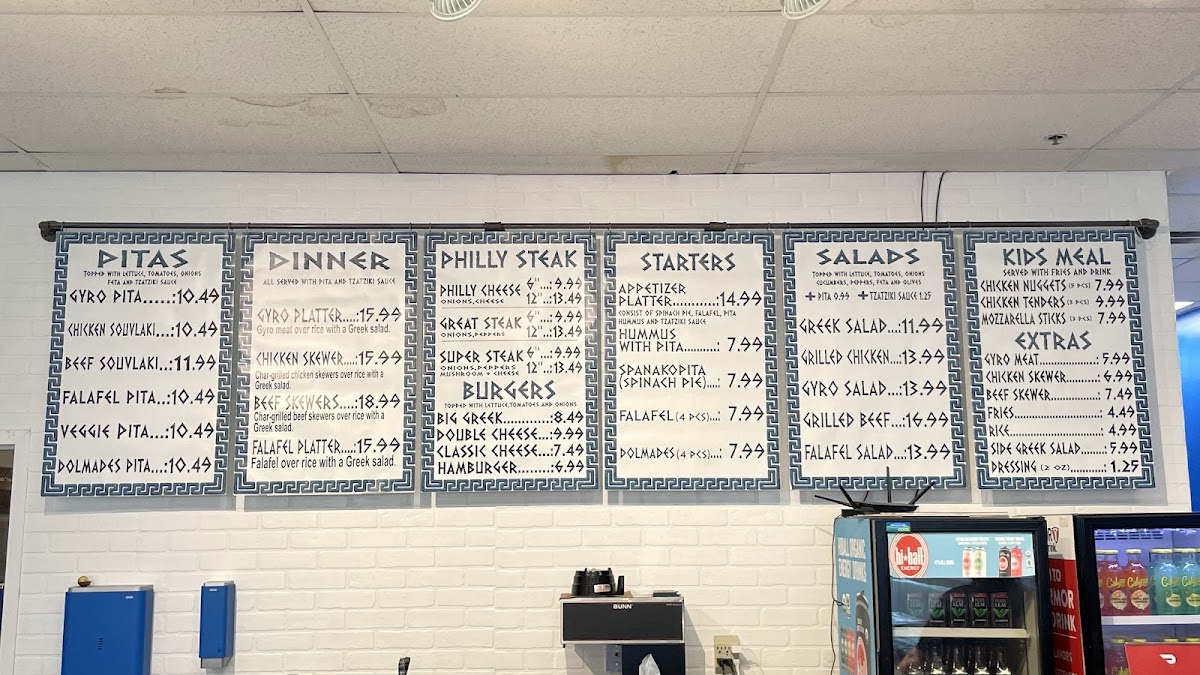 PITAS
TOPPED WITH LETTUCE, TOMATOES, ONIONS
FETA AND TZATZIKI SAUCE
GYRO PITA......:10.49
CHICKEN SOUVLAKI...:10.49
BEEF SOUVLAKI...:11.99
FALAFEL PITA...:10.49
VEGGIE PITA...:10.49
DOLMADES PITA...:10.49
DINNER
ALL SERVED WITH PITA AND TZATZIKI SAUCE
GYRO PLATTER....:15.99
Gyro meat over rice with a Greek salad.
CHICKEN SKEWER...:15.99
Char-grilled chicken skewers over rice with a
Greek salad.
BEEF SKEWERS....:18.99
Char-grilled beef skewers over rice with a
Greek salad.
FALAFEL PLATTER....:15.99
Falafel over rice with a Greek salad.
PHILLY STEAK
PHILLY CHEESE 6"...: 9.99
ONIONS,CHEESE 12"...:13.49
GREAT STEAK 6"...: 9.99
ONIONS,PEPPERS 12"...:13.49
SUPER STEAK 6"...: 9.99
ONIONS,PEPPERS 12"...:13.49
MUSHROOM + CHEESE
BURGERS
TOPPED WITH LETTUCE,TOMATOES AND ONIONS
BIG GREEK..........:8.49
DOUBLE CHEESE...:9.99
CLASSIC CHEESE...:7.49
HAMBURGER........:6.99
STARTERS
APPETIZER
PLATTER...........:14.99
CONSIST OF SPINACH PIE, FALAFEL, PITA
HUMMUS AND TZATZIKI SAUCE
HUMMUS
WITH PITA.........: 7.99
SPANAKOPITA
(SPINACH PIE)....: 7.99
FALAFEL (4 PCS)...: 7.99
DOLMADES (4 PCS)...: 7.99
SALADS
TOPPED WITH LETTUCE, TOMATOES, ONIONS,
CUCUMBERS, PEPPERS, FETA AND OLIVES
+ PITA 0.99 + TZATZIKI SAUCE 1.25
GREEK SALAD...:11.99
GRILLED CHICKEN...:13.99
GYRO SALAD...:13.99
GRILLED BEEF...:16.99
FALAFEL SALAD...:13.99
KIDS MEAL
SERVED WITH FRIES AND DRINK
CHICKEN NUGGETS (5 PCS) 7.99
CHICKEN TENDERS (3 PCS) 9.99
MOZZARELLA STICKS (3 PCS) 7.99
EXTRAS
GYRO MEAT...............: 5.99
CHICKEN SKEWER..........: 6.99
BEEF SKEWER.............: 7.49
FRIES...................: 4.49
RICE....................: 4.99
SIDE GREEK SALAD......: 5.99
DRESSING (2 OZ).........: 1.25
BUNN
hi*ball
ENERGY